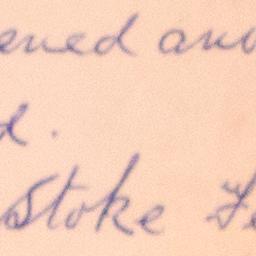 ened and
d.
Stoke Fe